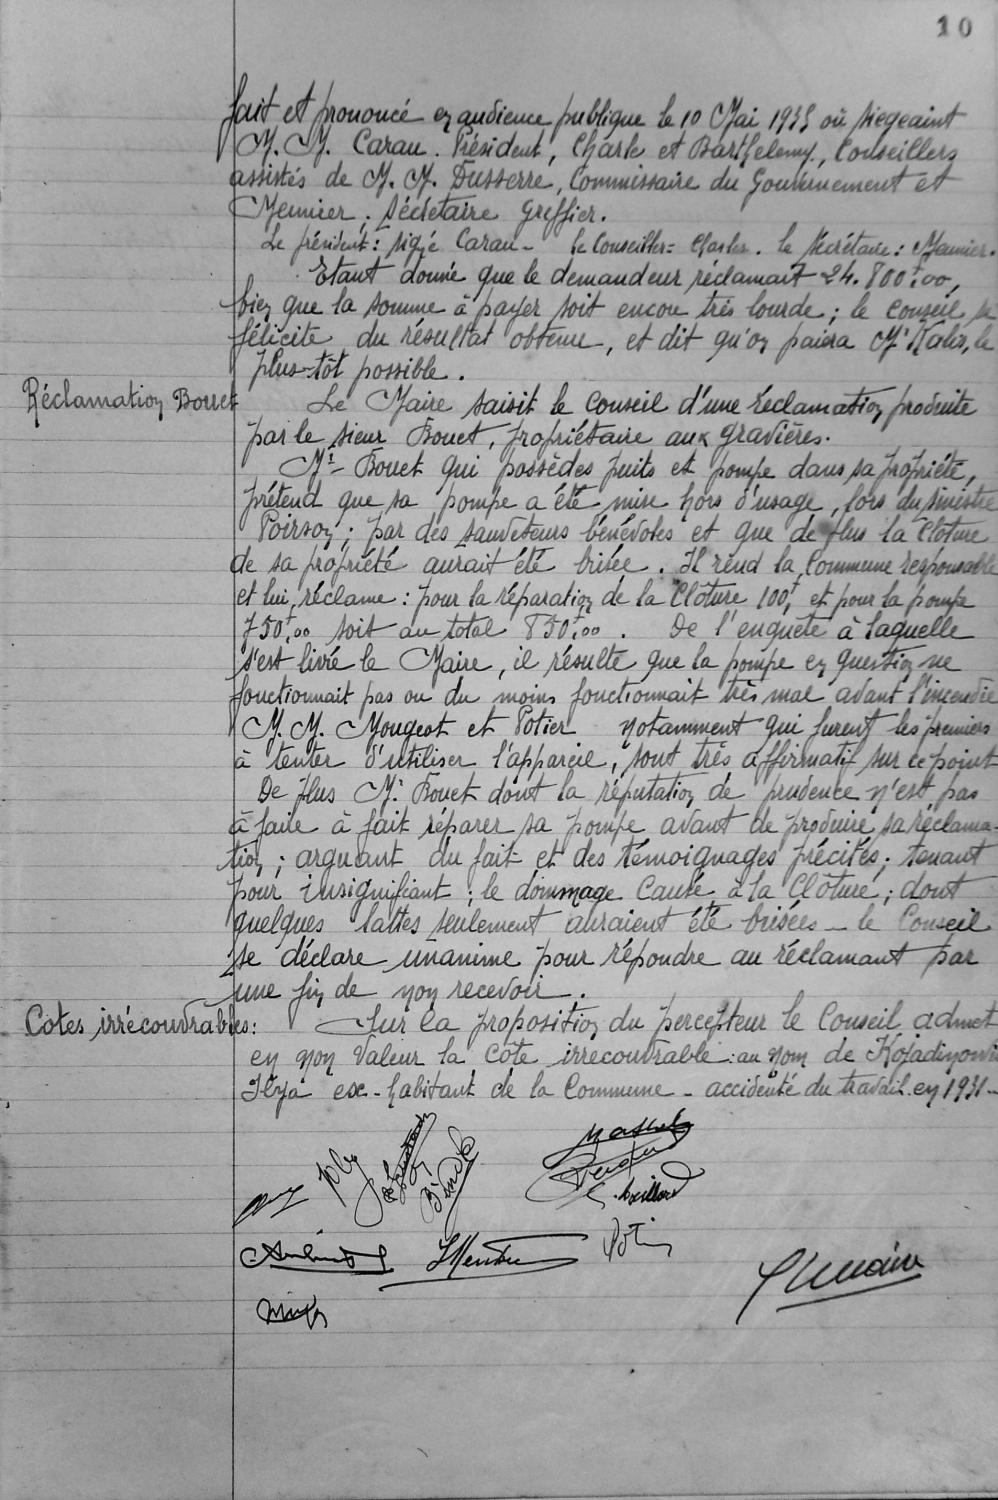 10
fait et prononcé en audience publique le 10 Mai 1935 où siegeaint
M. M. Carau. Président, Charle et Barthelemy, Conseillers
assistés de M. M. Dusserre, Commissaire du Gouvernement et
Meunier. Sécrétaire Greffier.
Le président: signé Carau - le Conseiller= Charles. le Sécrétaire: Meunier.
Etant donné que le demandeur réclamait 24.800f,00,
bien que la somme à payer soit encore très lourde; le conseil se
félicite du résultat obtenu, et dit qu'on paiera Mr Kalis, le
plus-tôt possible.
Réclamation Bouet
Le Maire saisit le Conseil d'une réclamation produite
par le sieur Bouet, propriétaire aux gravières.
Mr- Bouet qui possèdes puits et pompe dans sa propriété,
prétend que sa pompe a été mise hors d'usage, lors du sinistre
Poirson; par des sauveteurs bénévoles et que de plus la Clôture
de sa propriété aurait été brisée. Il rend la Commune responsable
et lui réclame: pour la réparation de la Clôture 100f, et pour la pompe
750f,00 soit au total 850f,00. De l'enquête à laquelle
s'est livré le Maire, il résulte que la pompe en question ne
fonctionnait pas ou du moins fonctionnait très mal avant l'incendie
M. M. Mougeot et Potier notamment qui furent les premiers
à tenter d'utiliser l'appareil, sont très affirmatif sur ce point
De plus Mr Bouet dont la réputation de prudence n'est pas
à faire à fait réparer sa pompe avant de produire sa réclama-
tion; arguant du fait et des témoignages précités; tenant
pour insignifiant; le dommage causé à la Clôture; dont
quelques lattes seulement auraient été brisées - le Conseil
se déclare unanime pour répondre au réclamant par
une fin de non recevoir.
Cotes irrécouvrables:
Sur la proposition du percepteur le Conseil admet
en non Valeur la côte irrecouvrable: au nom de Kojadinovi
Ilya ex-habitant de la Commune - accidenté du travail en 1931 -